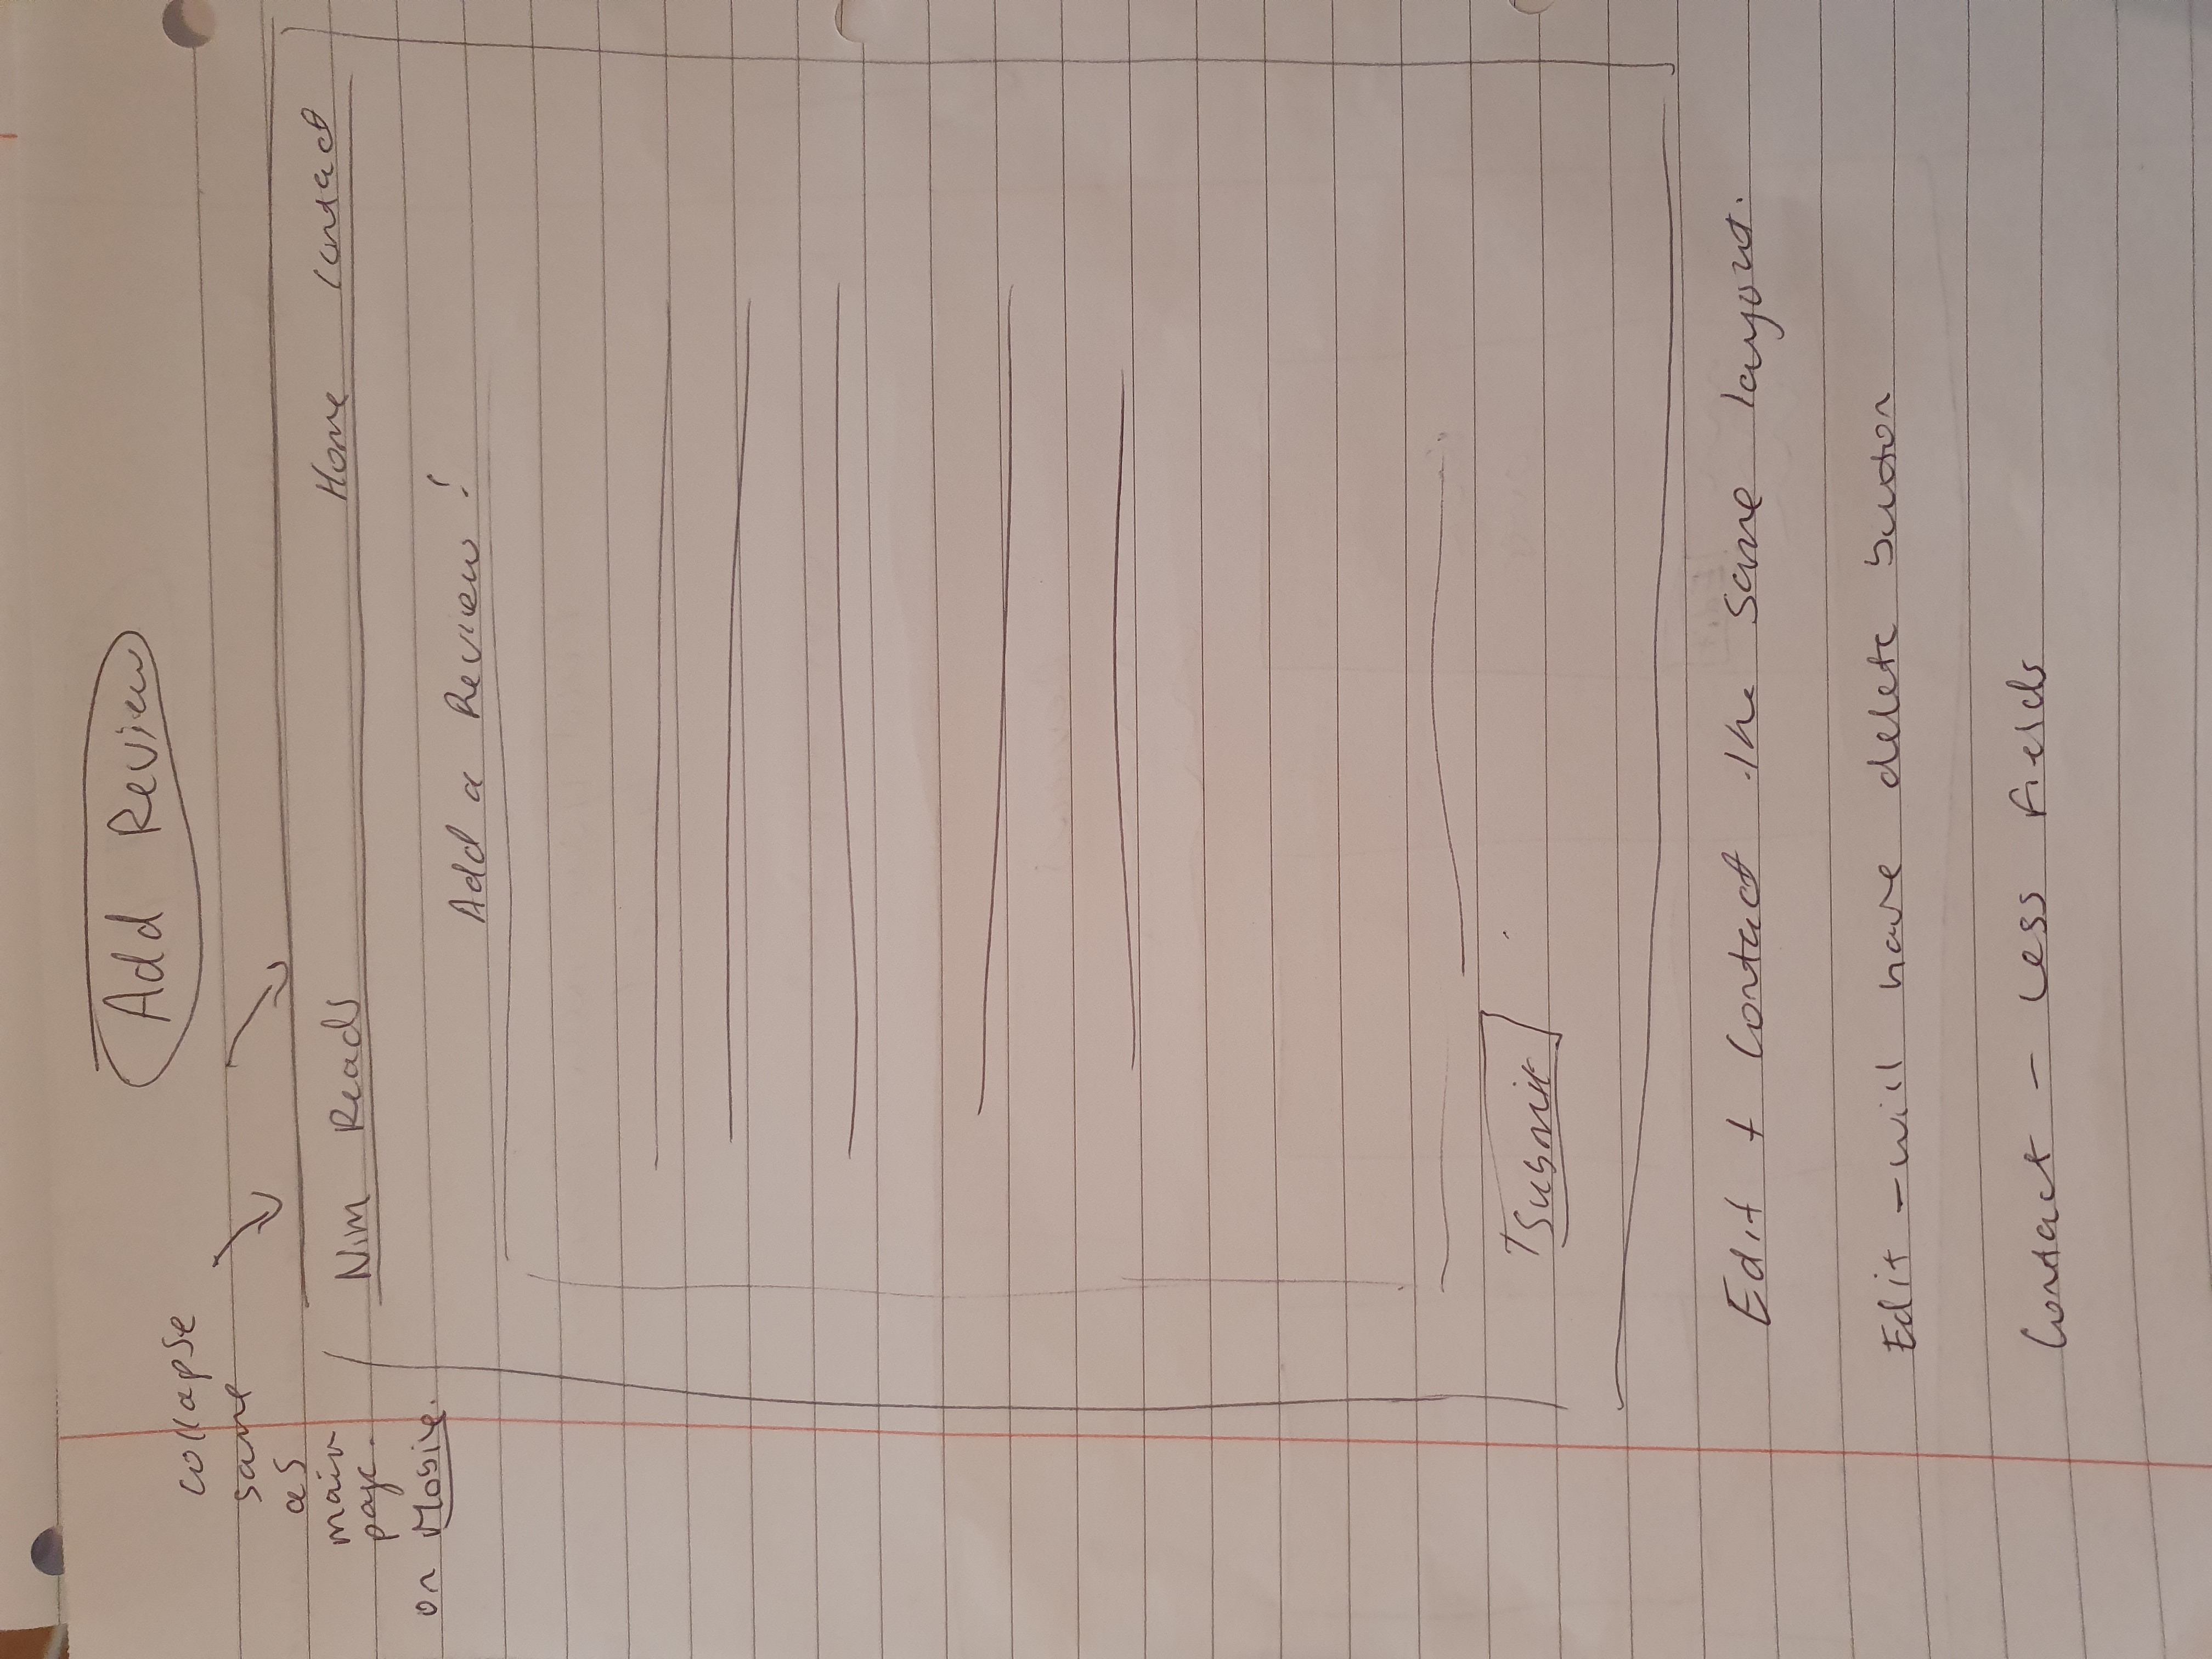 Add Review
collapse
same
as
main
page.
on Mobile.
Nim Reads Home Contact
Add a Review!
Submit
Edit + Contact the same layout.
Edit - will have delete button
Contact - Less fields